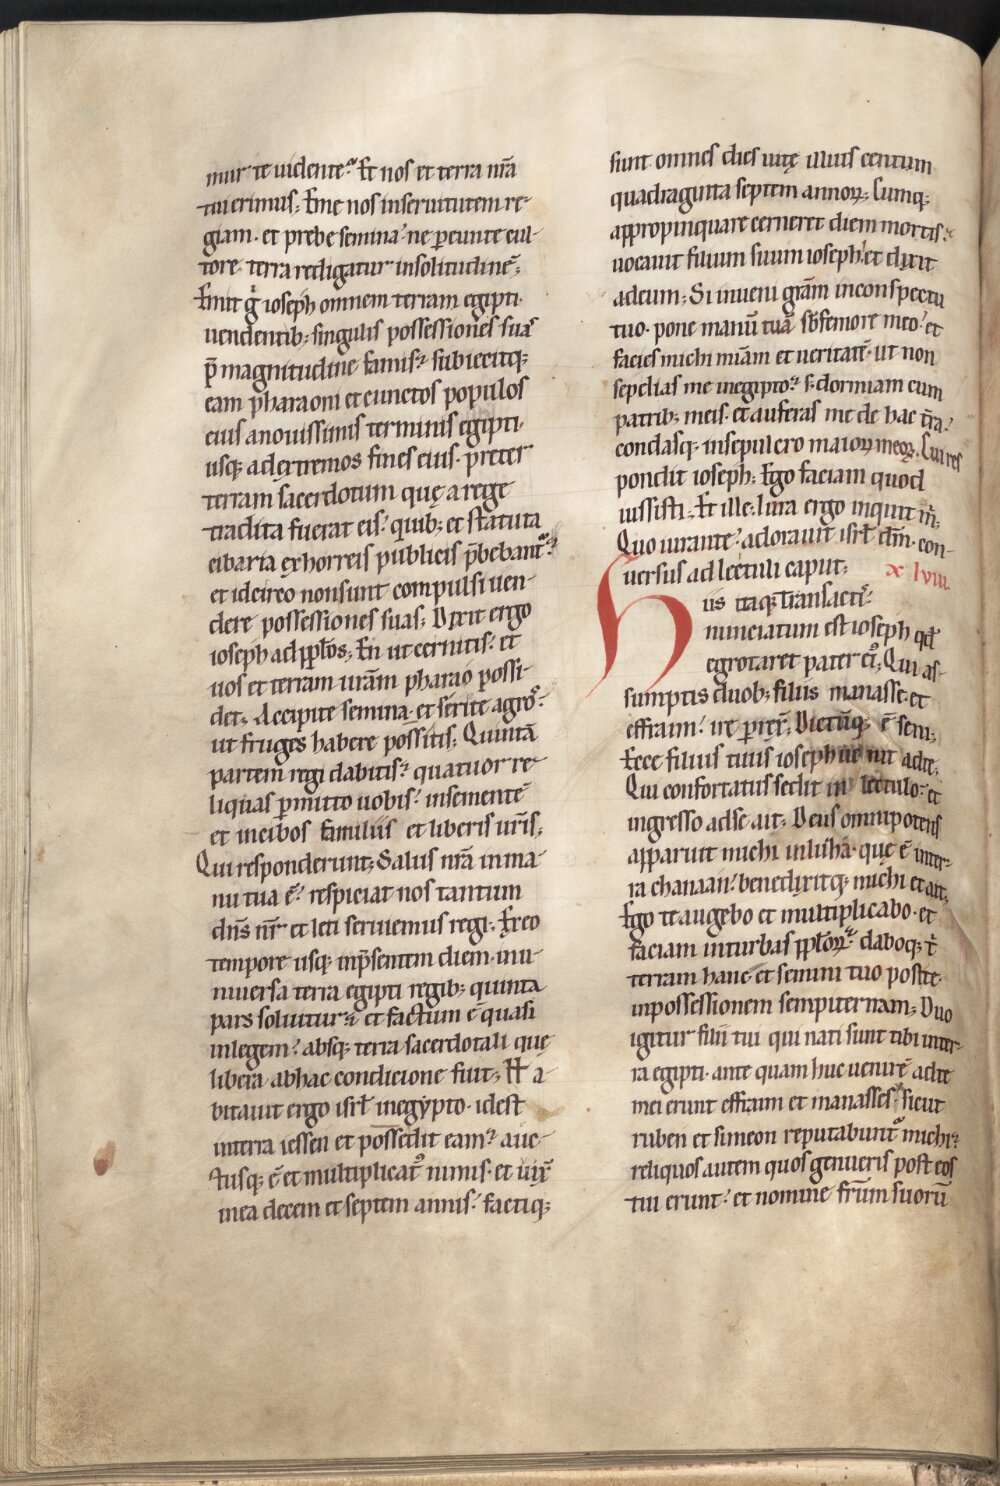 mur te uidente? Et nos et terra nr̄a
tui erimus; Eme nos inseruitutem re-
giam. et prebe semina. ne ꝑeunte cul-
tore. terra redigatur insolitudinē;
Emit gͥ ioseph omnem terram egipti.
uendentib; singulis possessiones suas
p̄ magnitudine famis. subiecitq;
eam pharaoni et cunctos populos
eius anouissimis terminis egipti.
usq; ad extremos fines eius. preter
terram sacerdotum quę arege
tradita fuerat eis. quib; et statuta
cibaria exhorreis publicis p̄bebant᷑.
et idcirco nonsunt compulsi uen-
dere possessiones suas; Dixit ergo
ioseph ad ppl̄os; En ut cernitis. et
uos et terram uram̄ pharao possi-
det; Accipite semina. et serite agros.
ut fruges habere possitis; Quintā
partem regi dabitis. quatuor re-
liquas ꝑmitto uobis. insementē
et incibos familiis et liberis ur̄is;
Qui responderunt; Salus nr̄a inma-
nu tua ē. respiciat nos tantum
dn̄s nr̄ et leti seruiemus regi; Ex eo
tempore usq; inp̄sentem diem. inu-
niuersa terra egipti regib; quinta
pars soluitur. et factum ē quasi
inlegem. absq; terra sacerdotali quę
libera abhac condicione fuit; Ha-
bitauit ergo isrl̄ inegypto. idest
interra iessen et possedit eam. auc-
tusq; ē et multiplicat᷑ nimis. et uix̄
inea decem et septem annis. factiq;
sunt omnes dies uitę illius centum
quadraginta septem annoꝝ; Cumq;
appropinquare cerneret diem mortis.
uocauit filium suum ioseph. et dixit
adeum; Si inueni gr̄am inconspectu
tuo. pone manū tuā sb̄ femore meo. et
facies michi mīam et ueritatē. ut non
sepelias me inegipto. s; dormiam cum
patrib; meis. et auferas me de hac tr̄a.
condasq; insepulcro maioꝝ meoꝝ. Cui res
pondit ioseph; Ego faciam quod
iussisti; Et ille; Iura ergo inquit m̄;
Quo iurante. adorauit isrl̄ dn̄m. con-
uersus ad lectuli caput; x lviii.
Hiis itaq; transactis.
nunciatum est ioseph qd̄
egrotaret pater ei᷒; Qui as-
sumptis duob; filiis manasse. et
effraim. ire ꝑrex̄; Dictūq; ē seni;
Ecce filius tuus ioseph uenit adte;
Qui confortatus sedit in lectulo. et
ingresso adse ait; Deus omnipotens
apparuit michi inluza. que ē inter-
ra chanaan. benedixitq; michi et ait;
Ego te augebo et multiplicabo. et
faciam inturbas ppl̄oꝝ. daboq; t̄
terram hanc. et semini tuo post te.
inpossessionem sempiternam; Duo
igitur filii tui qui nati sunt tibi inter-
ra egipti. ante quam huc uenirē adte
mei erunt effraim et manasses. sicut
ruben et simeon reputabunt᷑ michi.
reliquos autem quos genueris post eos
tui erunt. et nomine fr̄um suorū